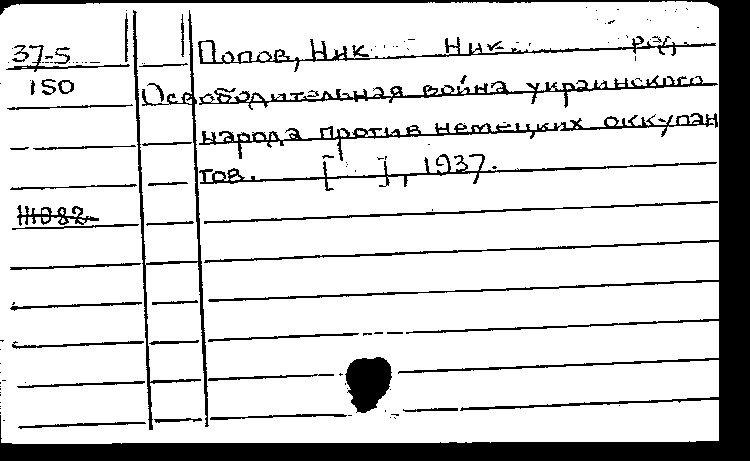 37-5 Попов, Ник. Ник. ред.
150 Освободительная война украинского
народа против немецких оккупан
тов. [ ], 1937.